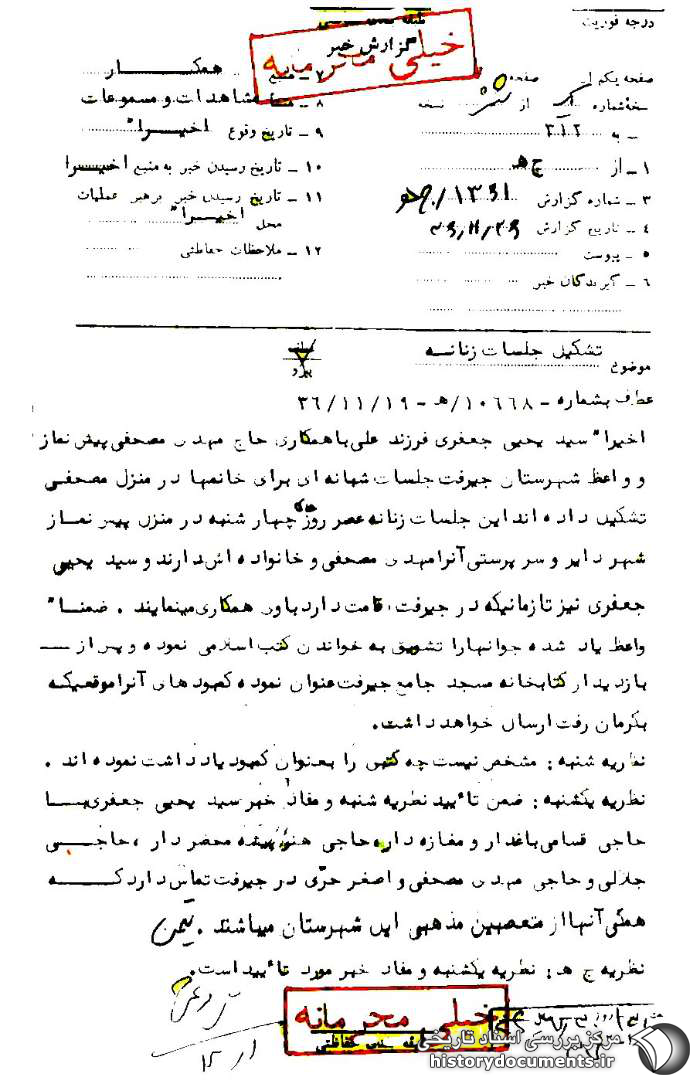 درجه فوریت
گزارش خبر
خیلی محرمانه
صفحه یکم از صفحه
نسخه شماره از نسخه
به ۳۱۲
۱ – از ج ه
۳ – شماره گزارش ۱۳۶۱/ج ه
۴ – تاریخ گزارش
۵ – پیوست
۶ – گیرندگان خبر
۷ – منبع همکار
۸ – مشاهدات و مسموعات
۹ – تاریخ وقوع اخیراً
۱۰ – تاریخ رسیدن خبر به منبع اخیراً
۱۱ – تاریخ رسیدن خبر برهبر عملیات
محل اخیراً
۱۲ – ملاحظات حفاظتی
موضوع تشکیل جلسات زنانه
عطف بشماره – ۱۰۶۶۸/ه – ۳۶/۱۱/۱۹
اخیراً سید یحیی جعفری فرزند علی با همکاری حاج مهدی مصحفی پیش نماز
و واعظ شهرستان جیرفت جلسات شبانه ای برای خانمها در منزل مصحفی
تشکیل داده اند این جلسات زنانه عصر روزهای چهار شنبه در منزل پیش نماز
شهر دایر و سرپرستی آنرا مهدی مصحفی و خانواده اش دارند و سید یحیی
جعفری نیز تا زمانیکه در جیرفت اقامت دارد باوی همکاری مینمایند . ضمناً
واعظ یاد شده جوانها را تشویق به خواندن کتب اسلامی نموده و پس از —
بازدید از کتابخانه مسجد جامع جیرفت عنوان نموده کمبود های آنرا موقعیکه
بکرمان رفت ارسال خواهد داشت.
نظریه شنبه : مشخص نیست چه کتبی را بعنوان کمبود یادداشت نموده اند .
نظریه یکشنبه : ضمن تأیید نظریه شنبه و مفاد خبر سید یحیی جعفری با
حاجی قسامی باغدار و مغازه دار، حاجی محضر دار ، حاجی
جلالی و حاجی مهدی مصحفی و اصغر حری در جیرفت تماس دارد که
همگی آنها از متعصبین مذهبی این شهرستان میباشند .
نظریه ج ه : نظریه یکشنبه و مفاد خبر مورد تأیید است.
خیلی محرمانه
مرکز بررسی اسناد تاریخی
historydocuments.ir